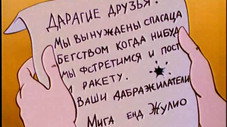 ДАРАГИЕ ДРУЗЬЯ!
МЫ ВЫНУЖДЕНЫ СПАСАЦА
БЕГСТВОМ КОГДА НИБУД
МЫ ФСТРЕТИМСЯ И ПОСТ
РАКЕТУ.
ВАШИ ДАБРАЖИЛАТЕЛИ
МИГА ЕНД ЖУЛИО